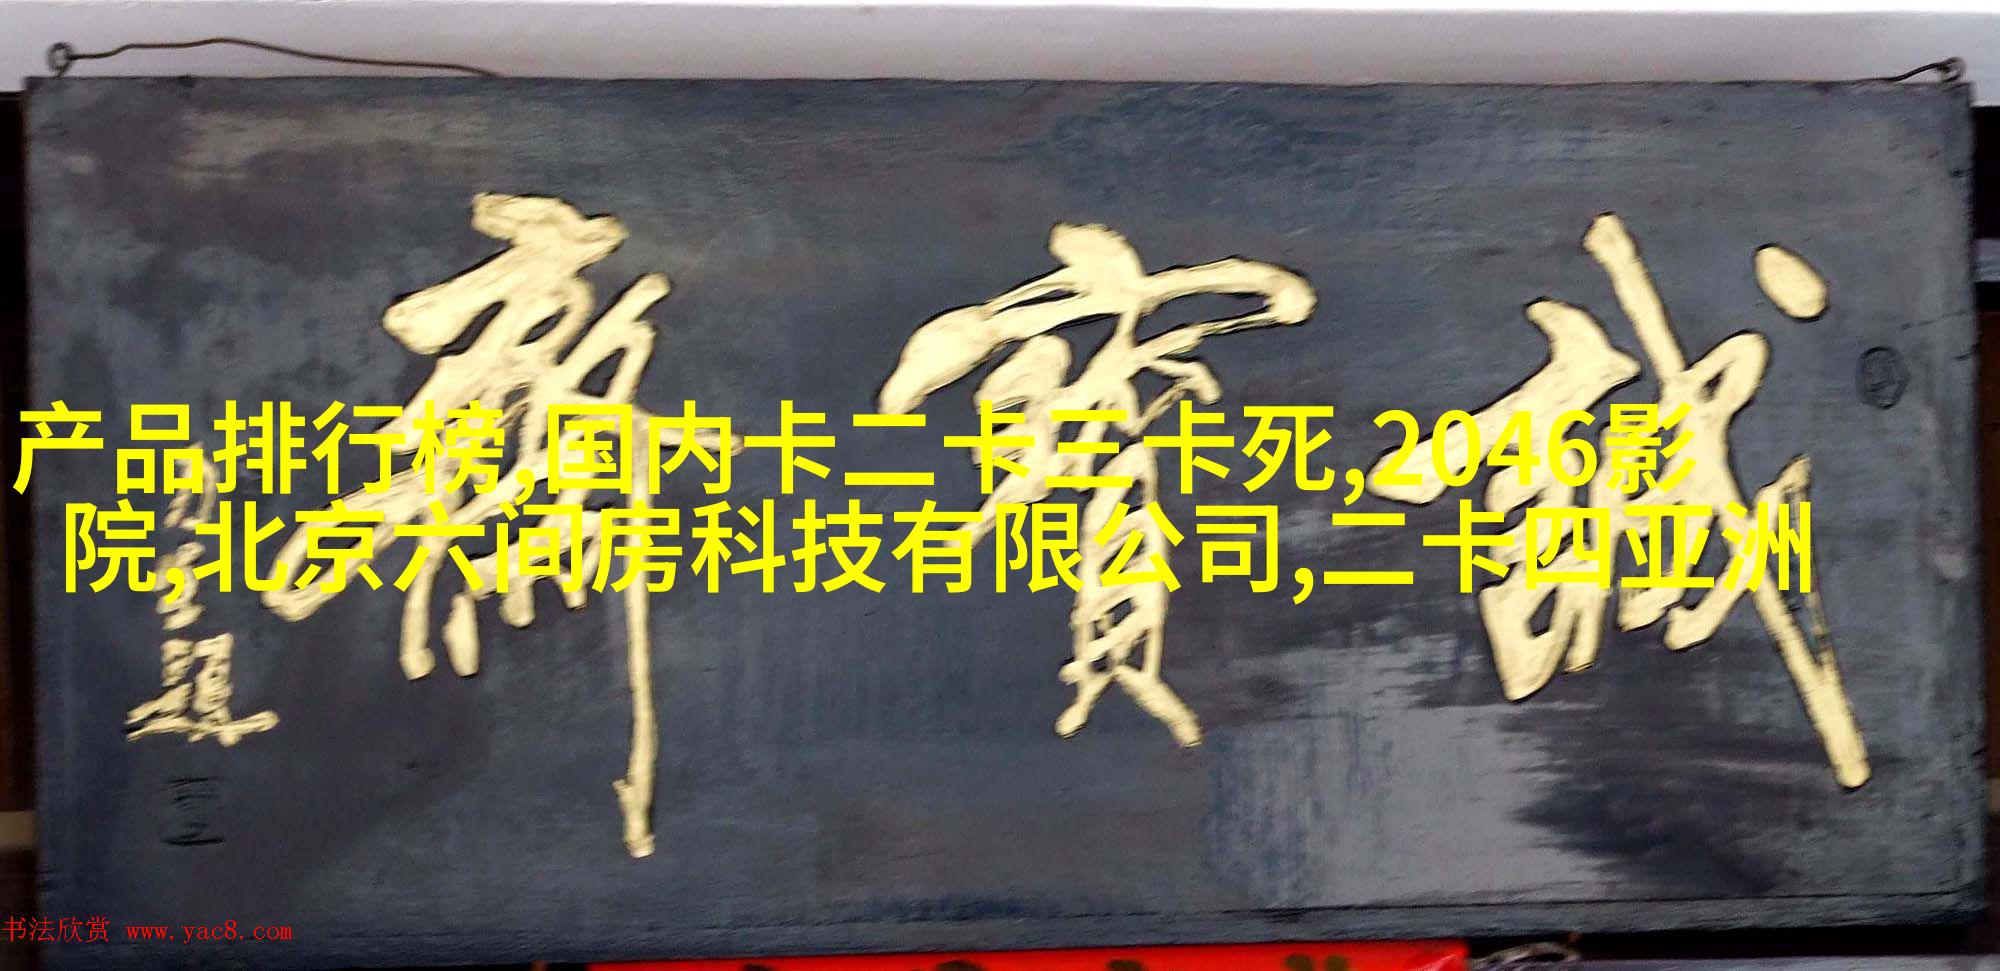 誠寶齋
产品排行榜,国内卡二卡三卡死,2046影
院,北京六间房科技有限公司,二卡四亚洲
书法欣赏 www.yac8.com